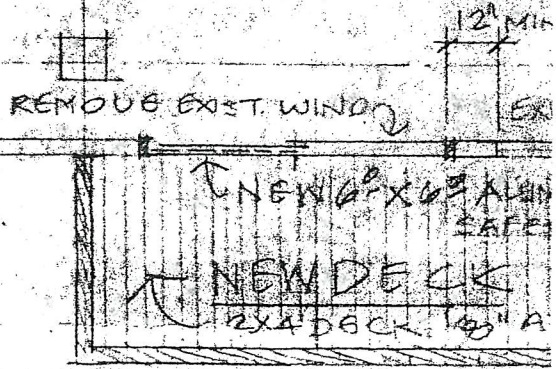 12" MIN
REMOVE EXIST. WIND
NEW 6⁰ X 6⁸ ALUM
SAFE
NEW DECK
2X4 DECK